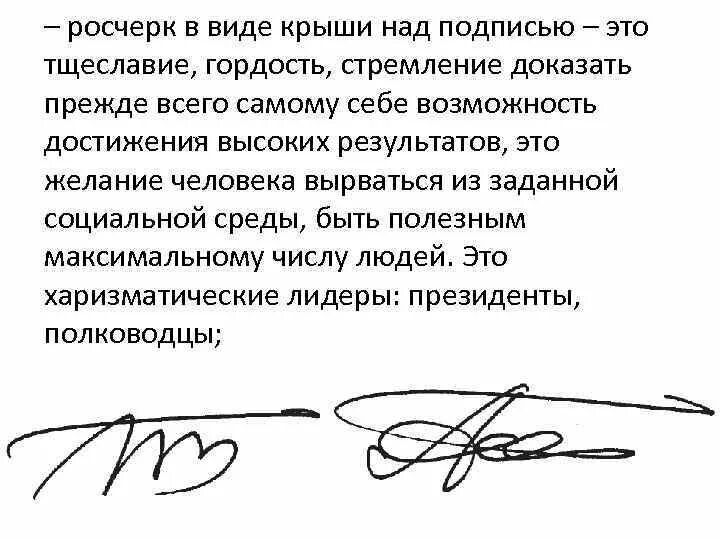 – росчерк в виде крыши над подписью – это
тщеславие, гордость, стремление доказать
прежде всего самому себе возможность
достижения высоких результатов, это
желание человека вырваться из заданной
социальной среды, быть полезным
максимальному числу людей. Это
харизматические лидеры: президенты,
полководцы;